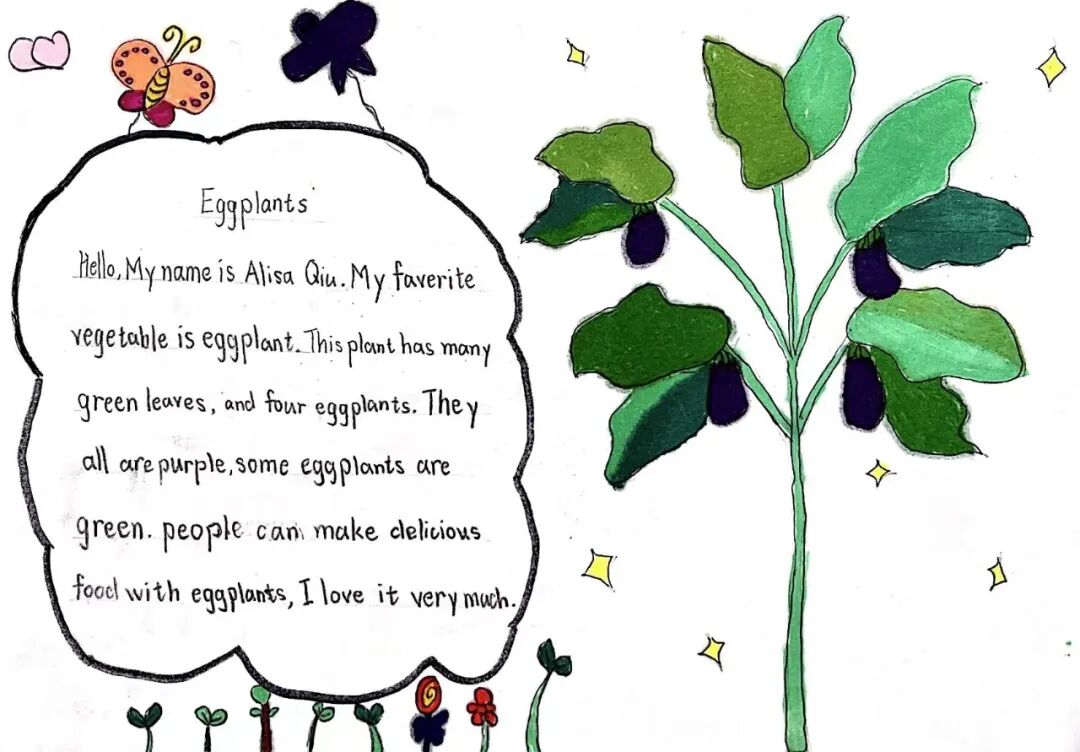 Eggplants
Hello, My name is Alisa Qiu. My faverite
vegetable is eggplant. This plant has many
green leaves, and four eggplants. They
all are purple, some eggplants are
green. people can make delicious
food with eggplants, I love it very much.